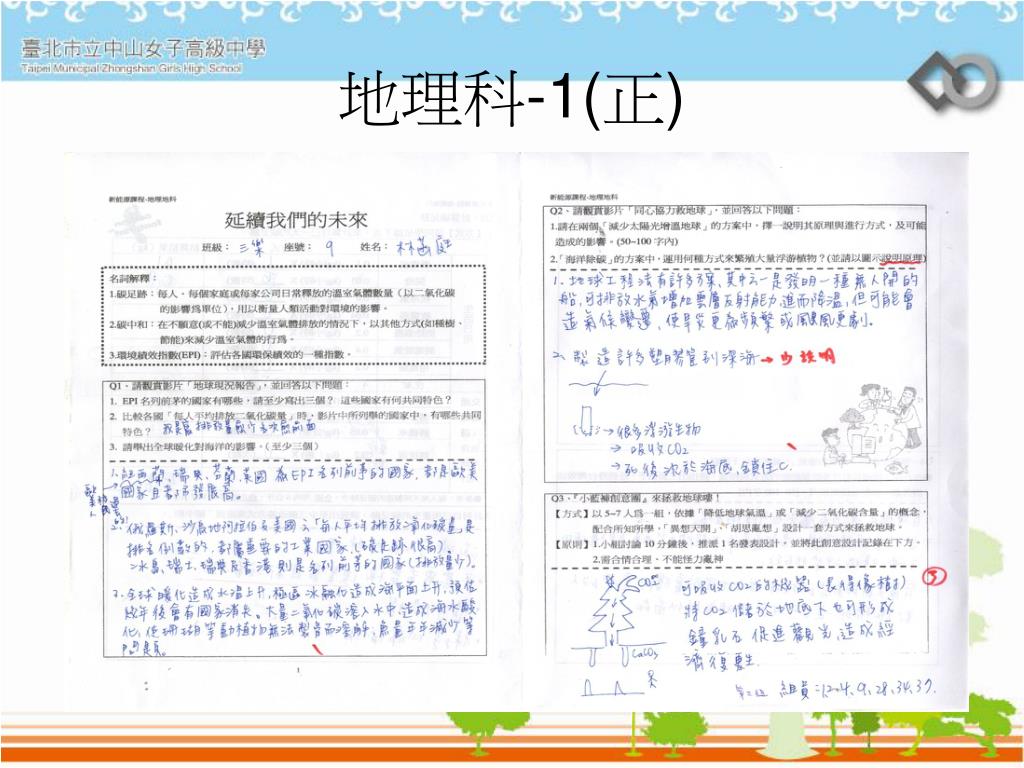 臺北市立中山女子高級中學
Taipei Municipal Zhongshan Girls High School
地理科-1(正)
新能源課程-地理地科
延續我們的未來
班級： 三樂 座號： 9 姓名： 林
名詞解釋：
1.碳足跡：每人、每個家庭或每家公司日常釋放的溫室氣體數量（以二氧化碳
的影響為單位），用以衡量人類活動對環境的影響。
2.碳中和：在不願意(或不能)減少溫室氣體排放的情況下，以其他方式(如種樹、
節能)來減少溫室氣體的行為。
3.環境績效指數(EPI)：評估各國環保績效的一種指數。
Q1、請觀賞影片「地球現況報告」，並回答以下問題：
1. EPI 名列前茅的國家有哪些，請至少寫出三個？ 這些國家有何共同特色？
2. 比較各國「每人平均排放二氧化碳量」時，影片中所列舉的國家中，有哪些共同
特色？
3. 請舉出全球暖化對海洋的影響。（至少三個）
1. 紐西蘭、瑞典、芬蘭、英國 為EPI名列前茅的國家，都是歐美
國家且都市發展高。
2. 俄羅斯、沙烏地阿拉伯及美國之「每人平均排放二氧化碳量」是
排名倒數的，都屬重要的工業國家。(碳足跡很高)
冰島、瑞士、瑞典及香港則是名列前茅的國家(排放量少)。
3. 全球暖化造成水溫上升，極區冰融化造成海平面上升，預估
數年後會有國家消失。大量二氧化碳溶入水中，造成海水酸
化，使珊瑚等動植物無法製骨而溶解，魚量年年減少等
問題。
1
新能源課程-地理地科
Q2、請觀賞影片「同心協力救地球」，並回答以下問題：
1.請在兩個「減少太陽光增溫地球」的方案中，擇一說明其原理與進行方式，及可能
造成的影響。(50~100 字內)
2.「海洋除碳」的方案中，運用何種方式來繁殖大量浮游植物？(並請以圖示說明原理)
1. 地球工程法有許多方案，其中之一是發明一種無人開的
船，可排放水氣增加雲層反射能力，進而降溫，但可能會
造氣候變遷，使旱災更為頻繁或颶風更劇。
2. 製造許多塑膠管到深海→少說明
→很多浮游生物
→吸收CO2
→死後沉於海底，鎖住C.
Q3、『小藍神創意團』來拯救地球嘍！
【方式】以 5~7 人為一組，依據「降低地球氣溫」或「減少二氧化碳含量」的概念，
配合所知所學，「異想天開」、「胡思亂想」設計一套方式來拯救地球。
【原則】1.小組討論 10 分鐘後，推派 1 名發表設計，並將此創意設計記錄在下方。
2.需合情合理、不能怪力亂神
CO2
可吸收CO2的機器(長得像樹)
將CO2儲於地底下也可形成
鐘乳石 促進觀光，造成經
濟復甦.
CaCO3
組員：1,2,4,9,28,34,37.